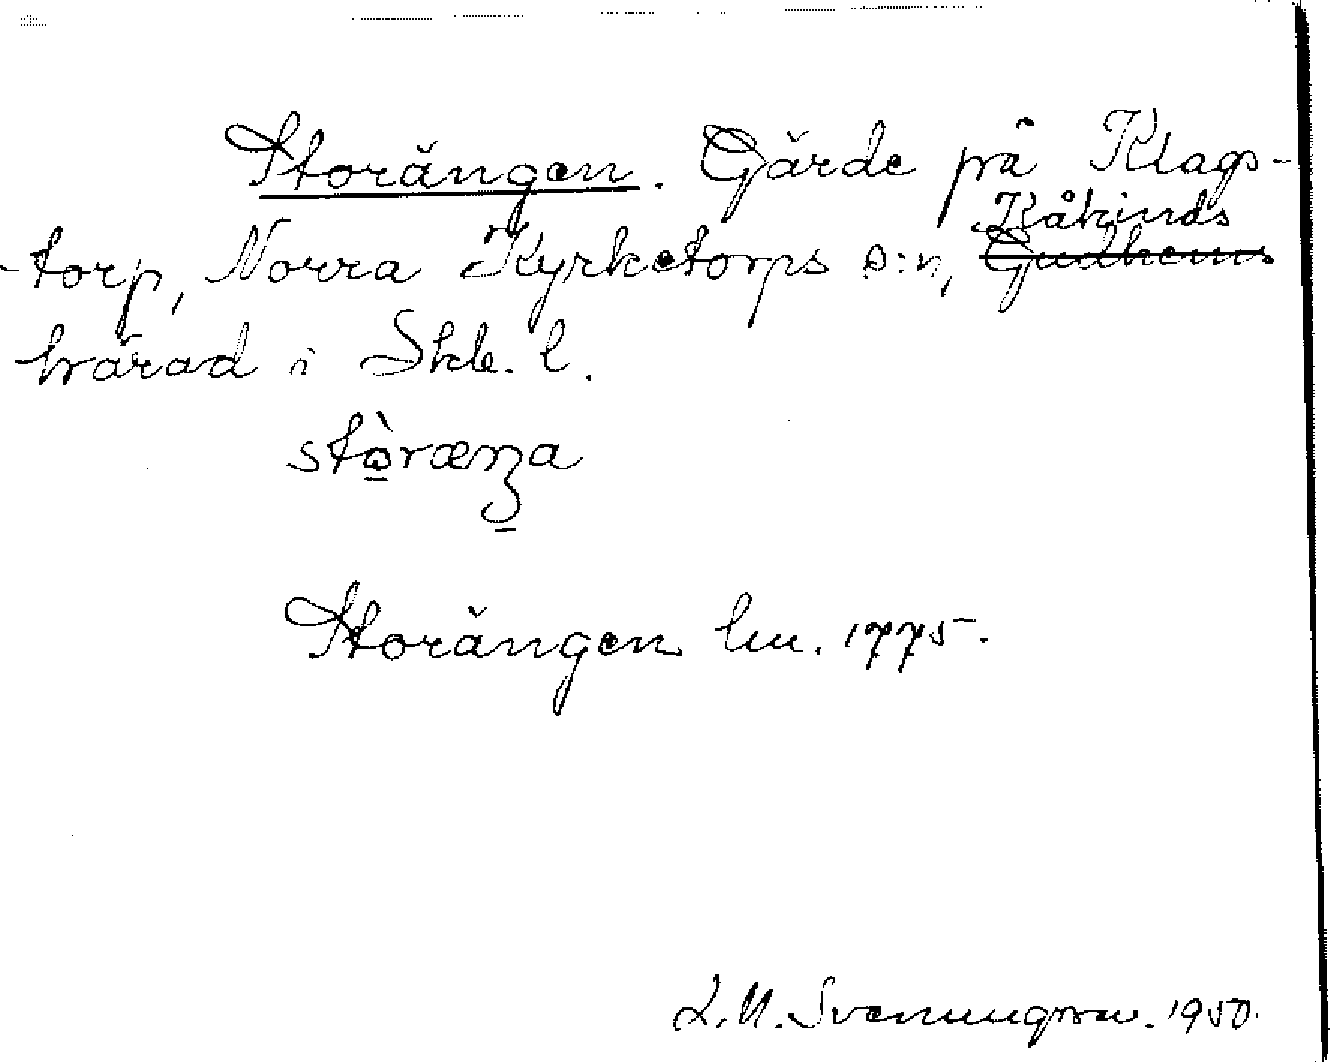 Storängen. Gärde på Klags-
torp, Norra Kyrketorps s:n, Kåkinds
Gudhems
härad i Skb. l.
stòræŋa
Storängen lm. 1775.
L.M. Svenungsson. 1950.